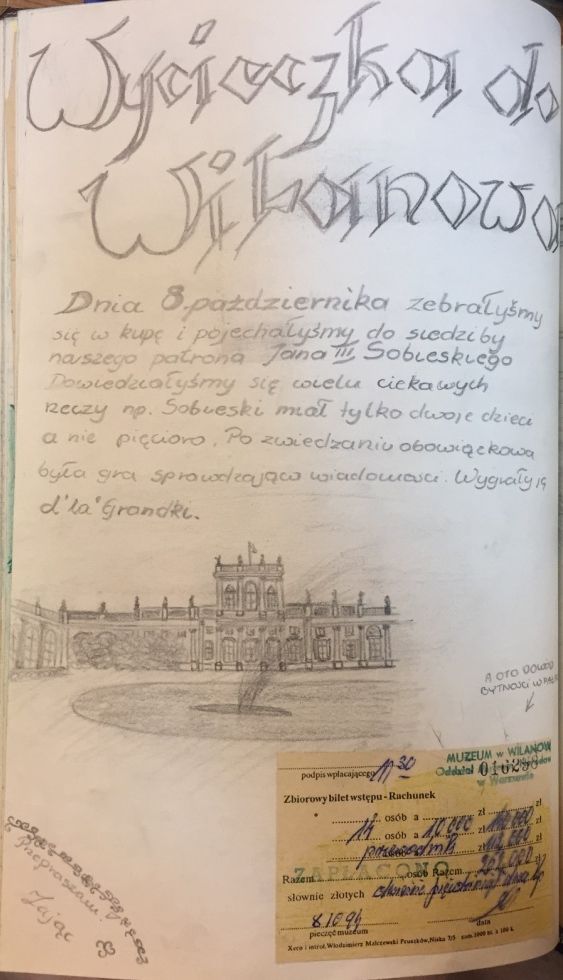 Wycieczka do
Wilanowa
Dnia 8. października zebrałyśmy
się w kupę i pojechałyśmy do siedziby
naszego patrona Jana III Sobieskiego
Dowiedziałyśmy się wielu ciekawych
rzeczy np. Sobieski miał tylko dwoje dzieci
a nie pięcioro. Po zwiedzaniu obowiązkowa
była gra sprawdzająca wiadomości. Wygrały ją
d'la' Grandki.
A OTO DOWÓD
BYTNOŚCI W
MUZEUM w WILANOW
Oddział
w Warszawie
016298
podpis wpłacającego 11 30
Zbiorowy bilet wstępu - Rachunek
14 osób a 10 000 zł zł
osób a zł zł
przewodnik
ZAPŁACONO
Razem osób Razem zł
słownie złotych
8.10.94
pieczęć muzeum data
Xero i introl. Włodzimierz Malczewski Pruszków, Niska 7/5 zam. 1000 bl. x 100 k.
Przepraszam!
Zając